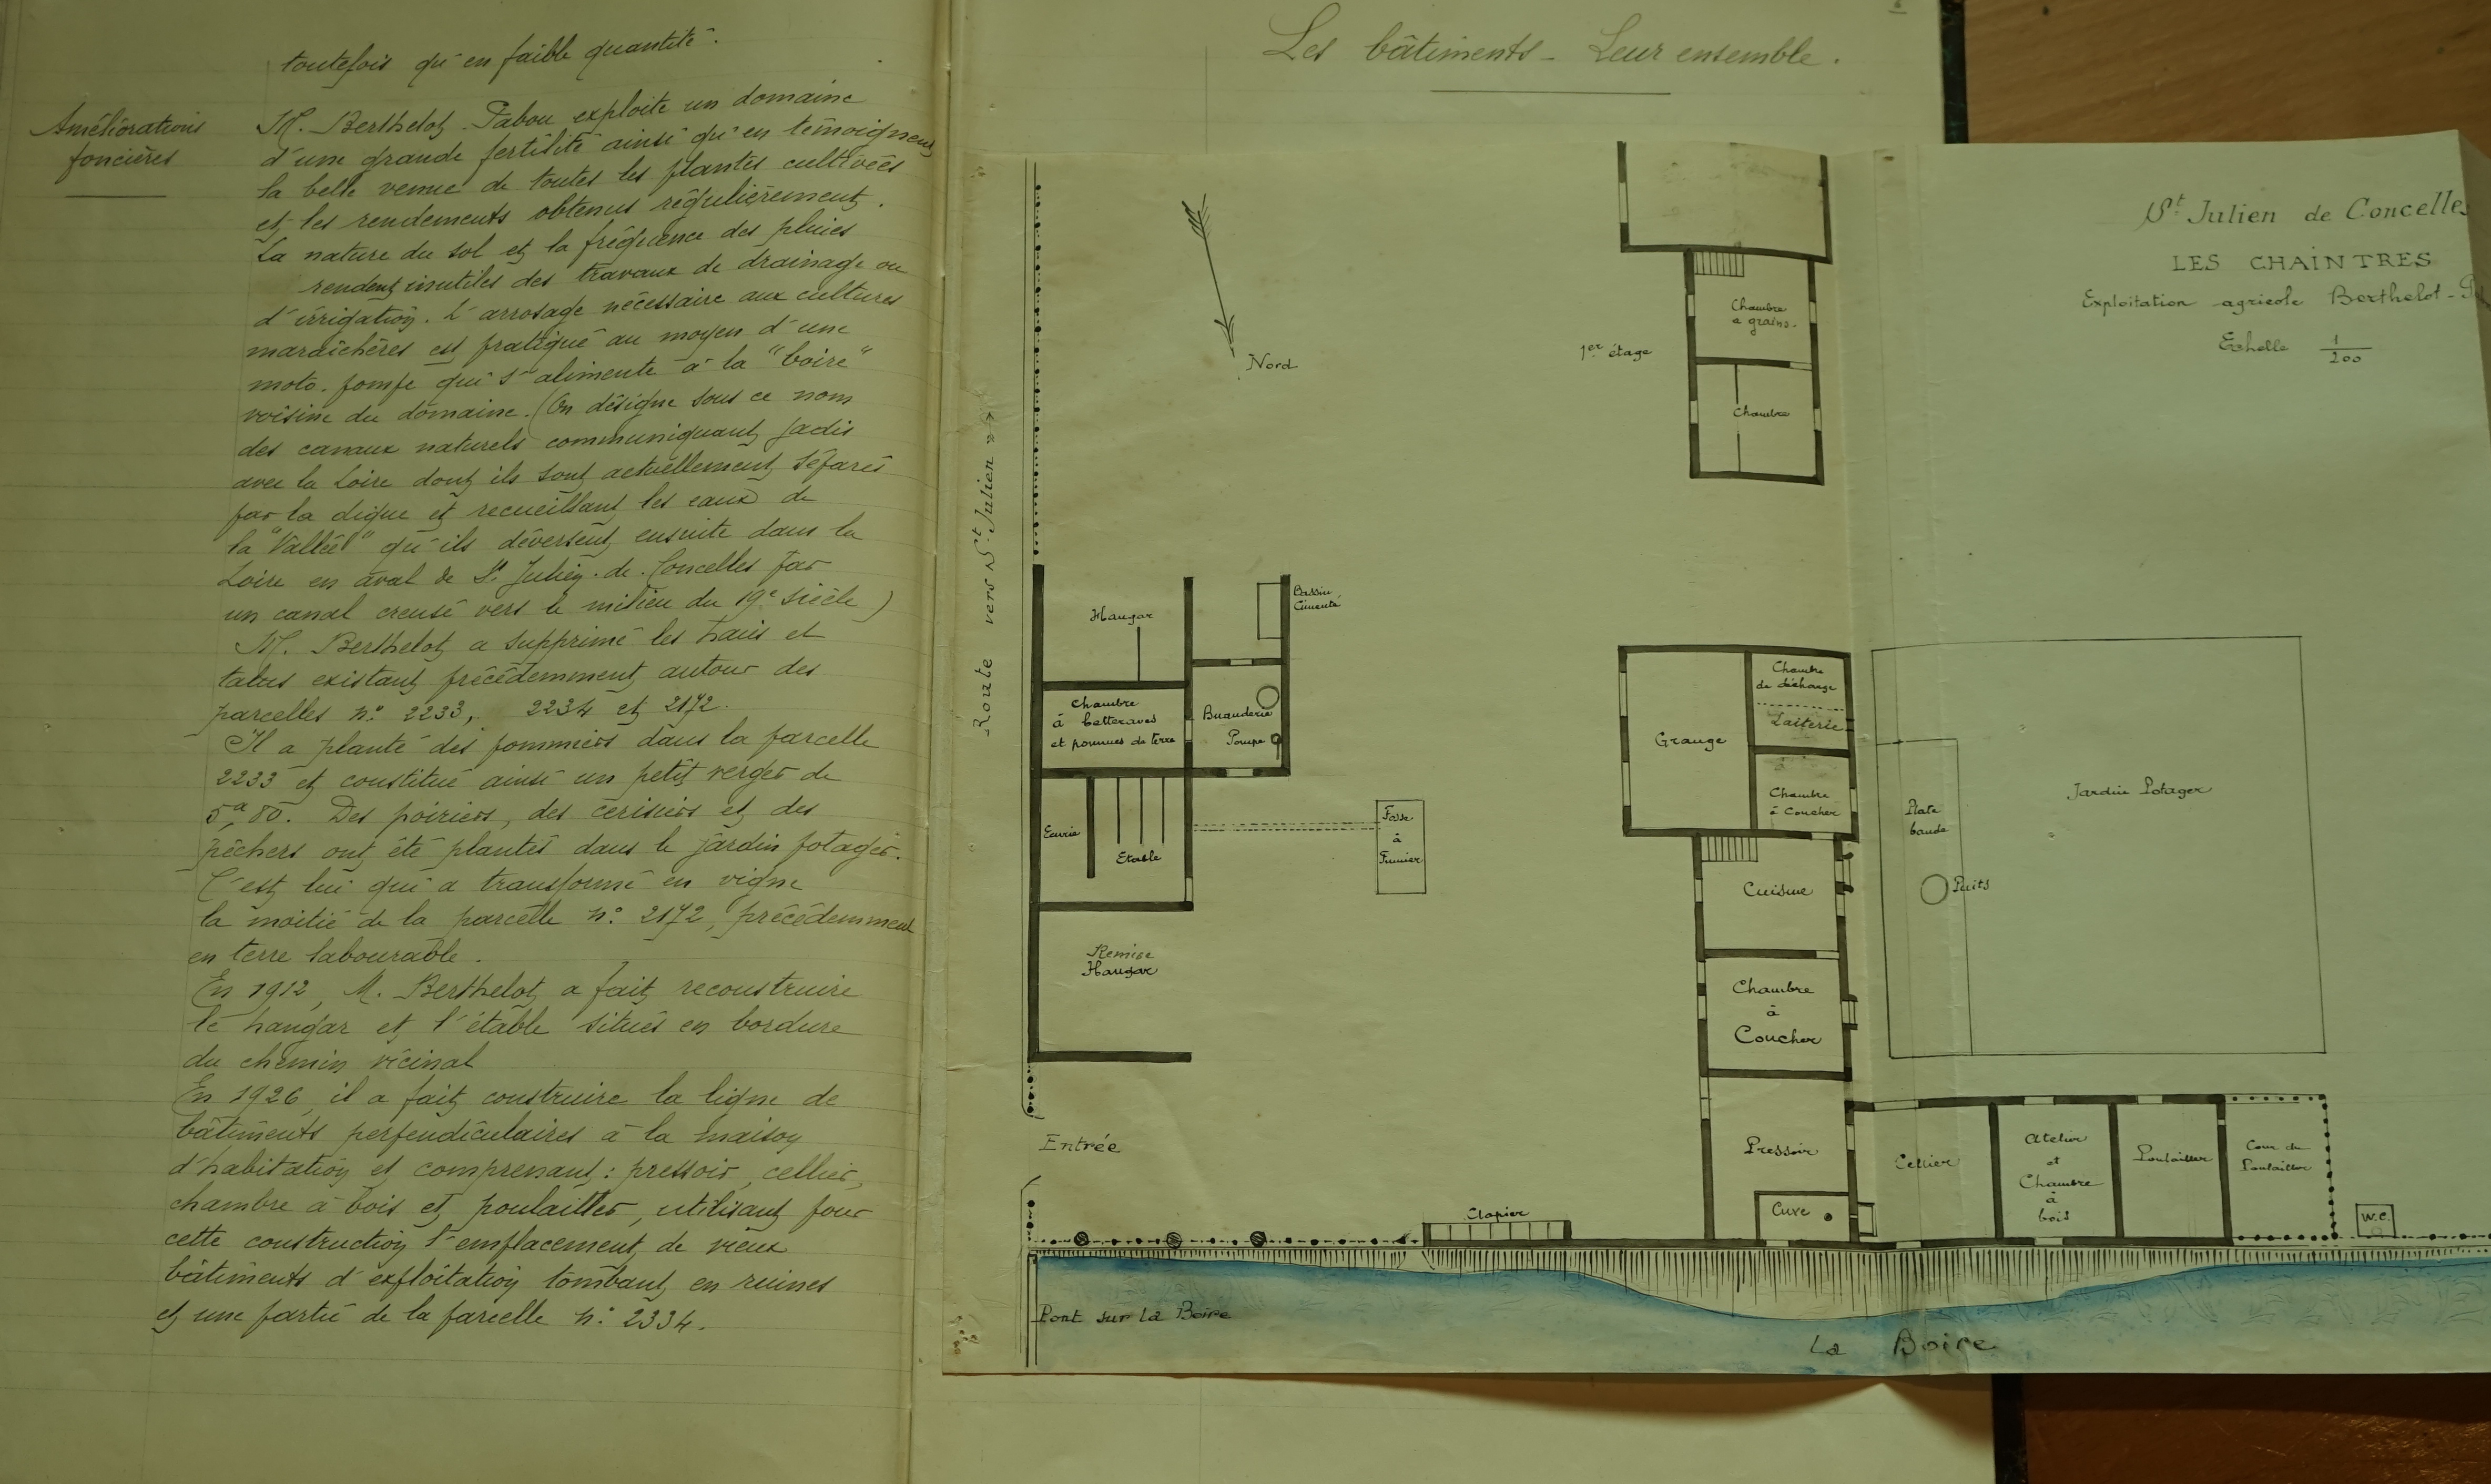 toutefois qu'en faible quantité.
Améliorations
foncières
M. Berthelot-Pabou exploite un domaine
d'une grande fertilité ainsi qu'en témoignent
la belle venue de toutes les plantes cultivées
et les rendements obtenus régulièrement.
La nature du sol et la fréquence des pluies
rendent inutiles des travaux de drainage ou
d'irrigation. L'arrosage nécessaire aux cultures
maraîchères est pratiqué au moyen d'une
moto-pompe qui s'alimente à la "boire"
voisine du domaine. (On désigne sous ce nom
des canaux naturels communiquant jadis
avec la Loire dont ils sont actuellement séparés
par la digue et recueillant les eaux de
la "Vallée" qu'ils déversent ensuite dans la
Loire en aval de St Julien-de-Concelles par
un canal creusé vers le milieu du 19e siècle)
M. Berthelot a supprimé les haies et
talus existant précédemment autour des
parcelles n° 2233, 2234 et 2172.
Il a planté des pommiers dans la parcelle
2233 et constitué ainsi un petit verger de
5a,80. Des poiriers, des cerisiers et des
pêchers ont été plantés dans le jardin potager.
C'est lui qui a transformé en vigne
la moitié de la parcelle n° 2172, précédemment
en terre labourable.
En 1912, M. Berthelot a fait reconstruire
le hangar et l'étable situés en bordure
du chemin vicinal
En 1926, il a fait construire la ligne de
bâtiments perpendiculaires à la maison
d'habitation et comprenant : pressoir, cellier,
chambre à bois et poulailler, utilisant pour
cette construction l'emplacement de vieux
bâtiments d'exploitation tombant en ruines
et une partie de la parcelle n° 2334.
Les bâtiments - Leur ensemble.
St Julien de Concelles
LES CHAINTRES
Exploitation agricole Berthelot-P
Echelle 1/200
Nord
Route vers St Julien
1er étage
Chambre
à grains
Chambre
Hangar
Bassin
Cimenté
Chambre
à betteraves
et pommes de terre
Buanderie
Pompe
Ecurie
Etable
Fosse
à
Fumier
Remise
Hangar
Entrée
Grange
Chambre
de décharge
Laiterie
Chambre
à Coucher
Cuisine
Chambre
à
Coucher
Pressoir
Cuve
Plate
bande
Puits
Jardin Potager
Cellier
Atelier
et
Chambre
à
bois
Poulailler
Cour du
Poulailler
W.C.
Clapier
Pont sur La Boire
La Boire